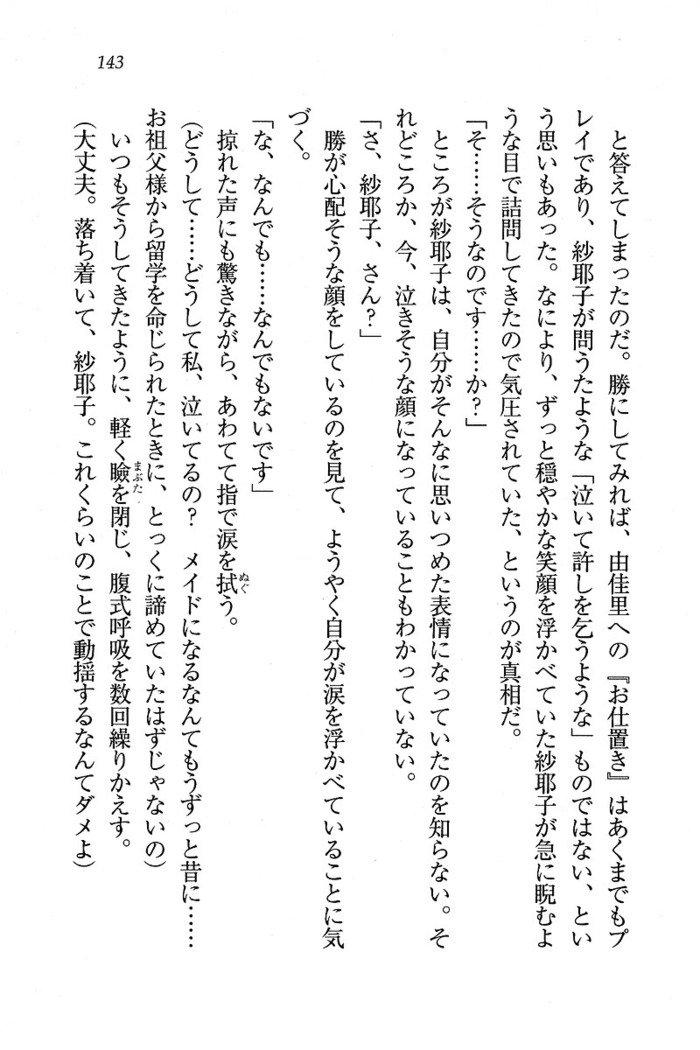 143
と答えてしまったのだ。勝にしてみれば、由佳里への『お仕置き』はあくまでもプ
レイであり、紗耶子が問うたような「泣いて許しを乞うような」ものではない、とい
う思いもあった。なにより、ずっと穏やかな笑顔を浮かべていた紗耶子が急に睨むよ
うな目で詰問してきたので気圧されていた、というのが真相だ。
「そ……そうなのです……か？」
ところが紗耶子は、自分がそんなに思いつめた表情になっていたのを知らない。そ
れどころか、今、泣きそうな顔になっていることもわかっていない。
「さ、紗耶子、さん？」
勝が心配そうな顔をしているのを見て、ようやく自分が涙を浮かべていることに気
づく。
「な、なんでも……なんでもないです」
掠れた声にも驚きながら、あわてて指で涙を拭う。
（どうして……どうして私、泣いてるの？　メイドになるなんてもうずっと昔に……
お祖父様から留学を命じられたときに、とっくに諦めていたはずじゃないの）
いつもそうしてきたように、軽く瞼を閉じ、腹式呼吸を数回繰りかえす。
（大丈夫。落ち着いて、紗耶子。これくらいのことで動揺するなんてダメよ）
ぬぐ
まぶた